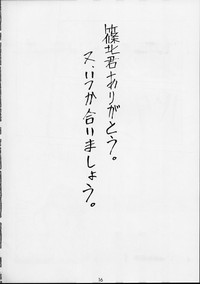 篠北君ありがとう。
又、いつか合いましょう。